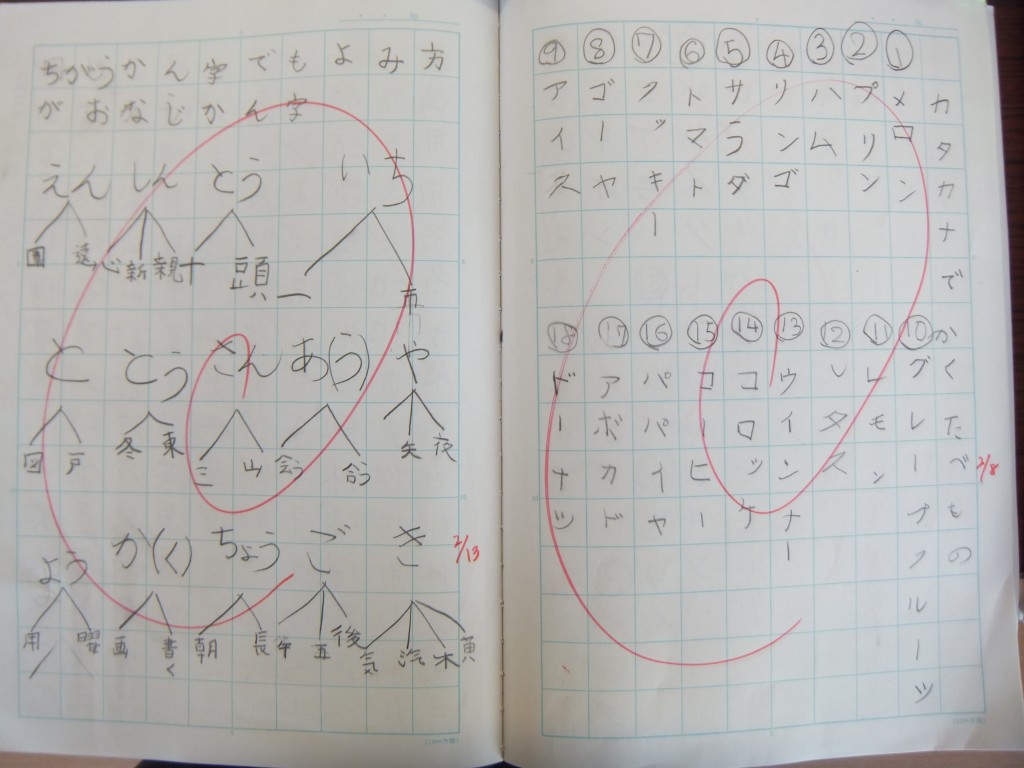 カタカナでかくたべもの
① メロン
② プリン
③ ハム
④ リンゴ
⑤ サラダ
⑥ トマト
⑦ クッキー
⑧ ゴーヤ
⑨ アイス
⑩ グレープフルーツ
⑪ レモン
⑫ レタス
⑬ ウインナー
⑭ コロッケ
⑮ コーヒー
⑯ パパイヤ
⑰ アボカド
⑱ ドーナツ
2/8
ちがうかん字でもよみ方
がおなじかん字
えん しん とう いち
園 遠 心 新 親 十 頭 一 市
と とう さん あ(う) や
図 戸 冬 東 三 山 会う 合う 矢 夜
よう か(く) ちょう ご き
用 曜 画 書く 朝 長 午 五 後 気 汽 木 黄
2/13